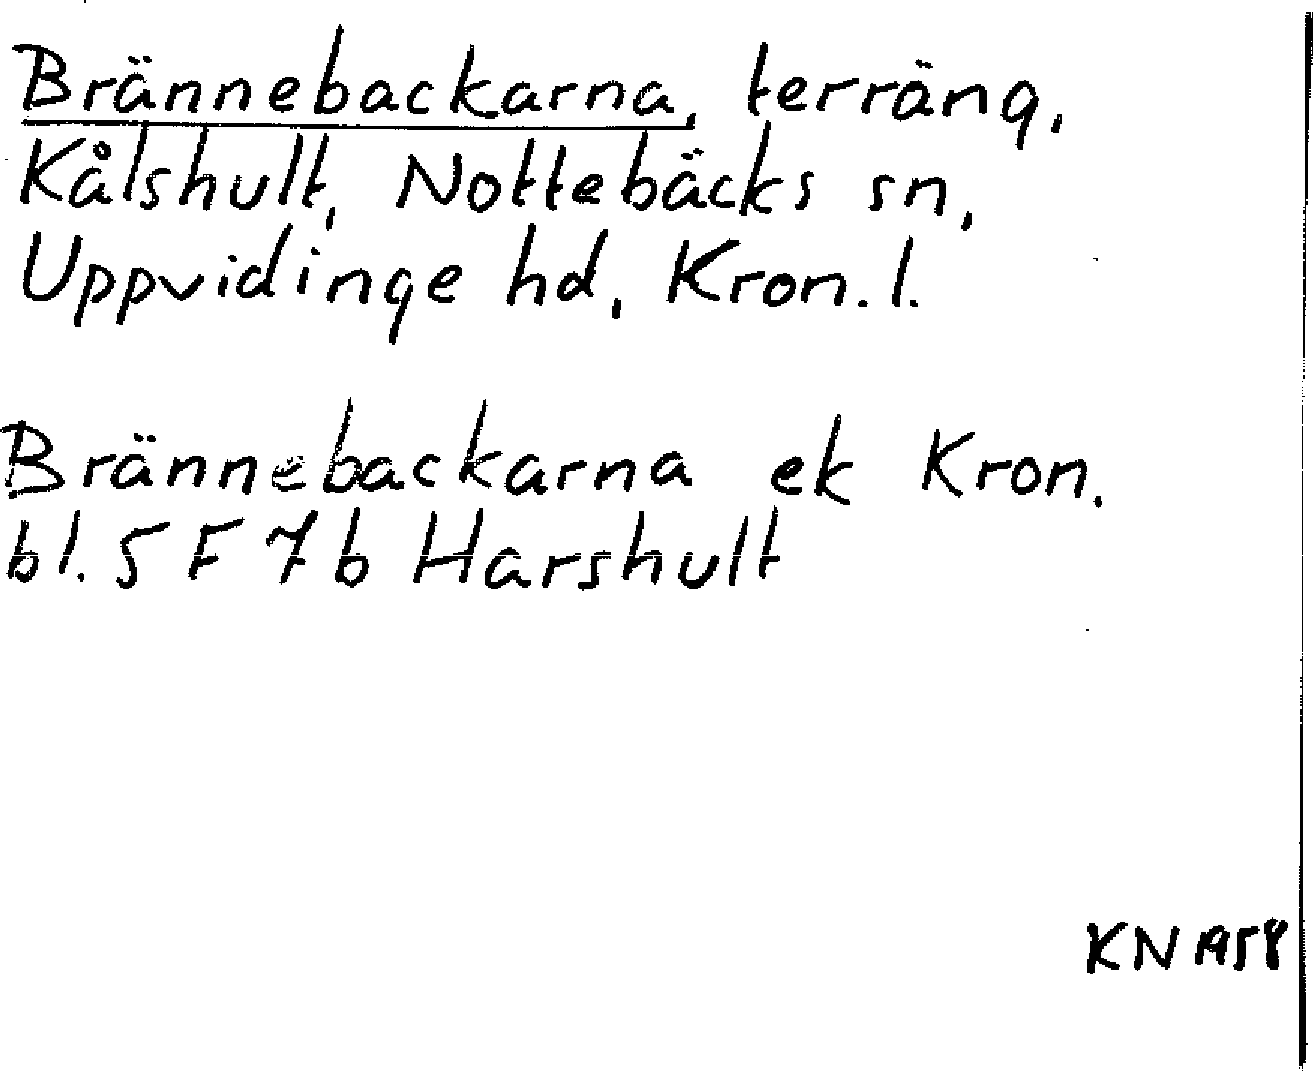 Brännebackarna, terräng,
Kålshult, Nottebäcks sn,
Uppvidinge hd, Kron. l.
Brännebackarna ek Kron.
bl. 5 F 7 b Harshult
KN 1958